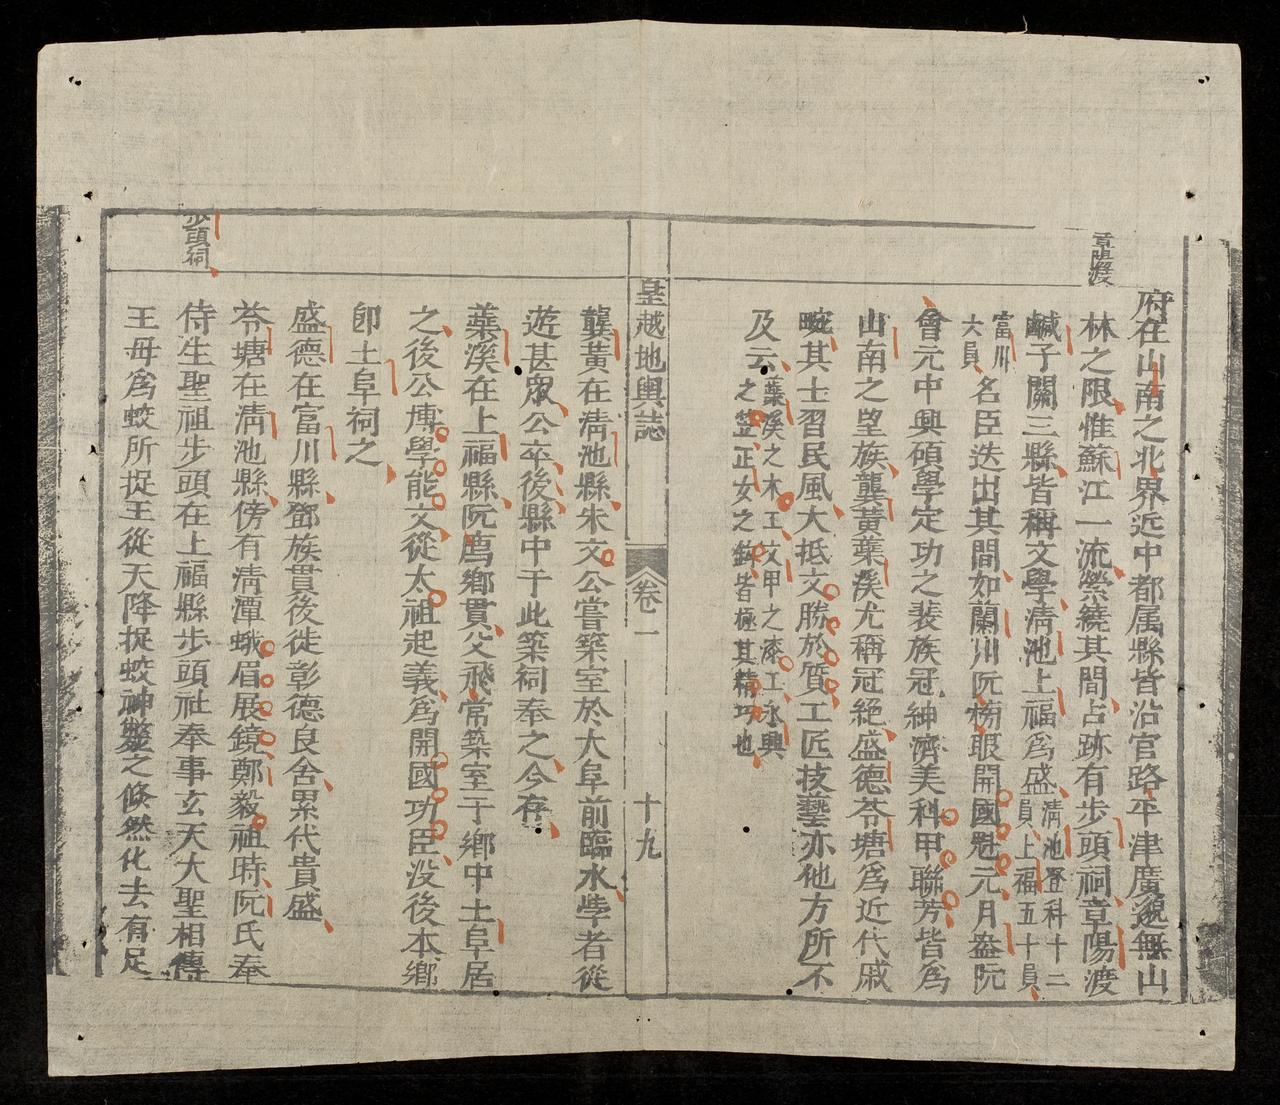 章陽渡
府在山南之北界近中都属縣皆沿官路平津廣邈無山
林之限惟蘇江一流縈繞其間占跡有步頭祠章陽渡
鹹子關三縣皆稱文學淸池上福爲盛淸池登科十二員上福五十員
富川六員名臣迭出其間如蘭川阮榜眼開國魁元月盎阮
會元中興碩學定功之裴族冠紳濟美科甲聯芳皆爲
山南之望族龔黄蘂溪尤稱冠絶盛德苓塘爲近代戚
畹其士習民風大抵文勝於質工匠技藝亦他方所不
及云蘂溪之木工文甲之漆工永興之笠正女之鉢皆極其精巧也
皇越地輿誌 卷一 十九
龔黄在淸池縣朱文公嘗築室於大阜前臨水學者從
遊甚眾公卒後縣中于此築祠奉之今存
蘂溪在上福縣阮廌鄉貫父飛常築室于鄉中土阜居
之後公博學能文從太祖起義爲開國功臣没後本鄉
卽土阜祠之
盛德在富川縣鄧族貫後徙彰德良舍累代貴盛
苓塘在淸池縣傍有淸潭蛾眉展鏡鄭毅祖時阮氏奉
步頭祠
侍生聖祖步頭在上福縣步頭社奉事玄天大聖相傳
王母爲蛟所捉王從天降捉蛟神鑿之倏然化去有足